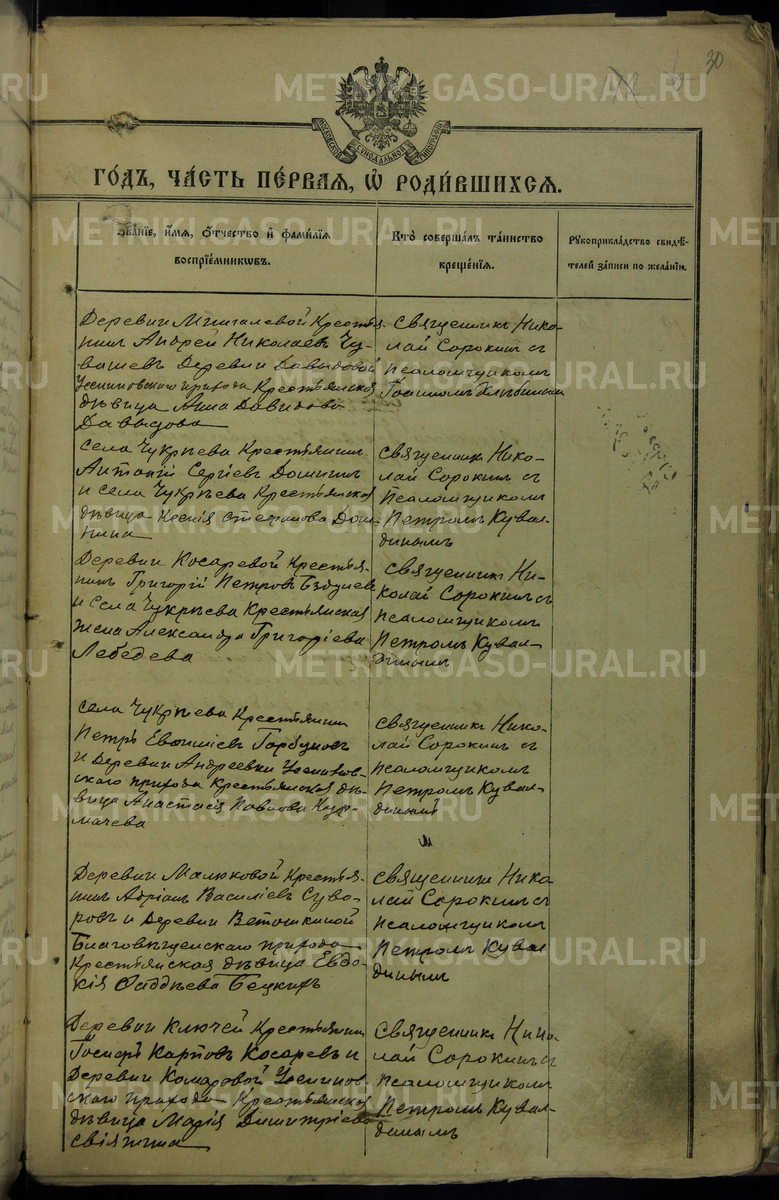 30
МОСКОВСКОЙ СѴНОДАЛЬНОЙ ТИПОГРАФІИ
ГО́ДЪ, ЧА́СТЬ ПЕ́РВАЯ, Ѽ РОДИ́ВШИХСЯ.
Зва́ніе, и́мя, о́тчество и҆ фами́лія
воспріе́мниковъ.
Кто̀ соверша́лъ та́инство
креще́нія.
Рꙋкоприкла́дство свидѣ́-
телей за́писи по жела́нію.
Деревни Мингалевой Крестья-
нинъ Андрей Николаевъ Чу-
вашевъ Деревни Давыдовой
прихода Крестьянская
дѣвица Анна Давидова
Давыдова
Священникъ Нико-
лай Сорокинъ съ
псаломщикомъ
Села Чукрѣева Крестьянинъ
Антоній Сергіевъ Доминъ
и села Чукрѣева Крестьянская
дѣвица Ксенія Стефанова Дом-
нина
Священникъ Нико-
лай Сорокинъ съ
Псаломщикомъ
Петромъ Кувал-
динымъ
Деревни Косаревой Крестья-
нинъ Григорій Петровъ
и Села Чукрѣева Крестьянская
жена Александра Григоріева
Лебедева
Священникъ Ни-
колай Сорокинъ съ
псаломщикомъ
Петромъ Кувал-
динымъ
Села Чукрѣева Крестьянинъ
Петръ Евѳиміевъ Горбуновъ
и Деревни Андреевки
скаго прихода Крестьянская дѣ-
вица Анастасія Павлова Кур-
мачева
Священникъ Нико-
лай Сорокинъ съ
псаломщикомъ
Петромъ Кувал-
динымъ
Деревни Малюковой Крестья-
нинъ Адріанъ Василіевъ Суво-
ровъ и Деревни Ветошкиной
Благовѣщенскаго прихода
Крестьянская дѣвица Евдо-
кія Ѳаддѣева Бецкихъ
Священникъ Нико-
лай Сорокинъ съ
псаломщикомъ
Петромъ Кувал-
динымъ
Деревни Ключей Крестьянинъ
Іосифъ Карповъ Косаревъ и
Деревни Комаровой
скаго прихода Крестьянская
дѣвица Марія Димитріева
Свіяжина
Священникъ Нико-
лай Сорокинъ съ
псаломщикомъ
Петромъ Кувал-
динымъ
METRIKI.GASO-URAL.RU